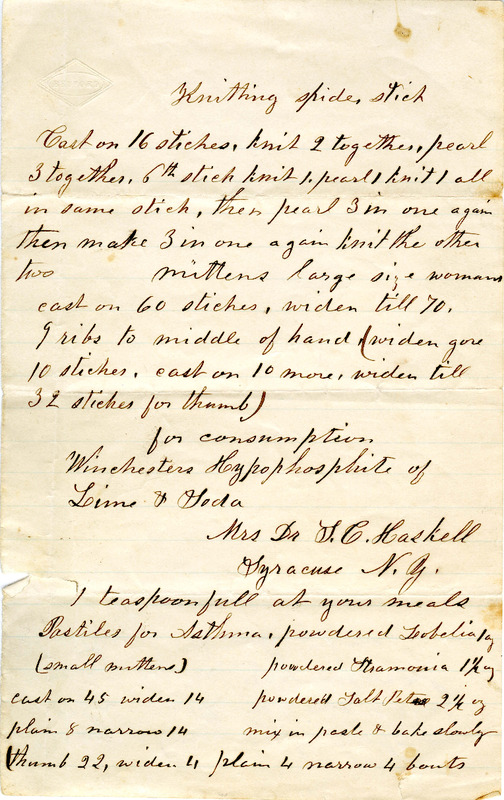 Knitting spider stich
Cast on 16 stiches, knit 2 together, pearl
3 together, 6th stich knit 1, pearl 1 knit 1 all
in same stich, then pearl 3 in one again
then make 3 in one again knit the other
two mittens large size womans
cast on 60 stiches, widen till 70.
9 ribs to middle of hand (widen gore
10 stiches, cast on 10 more, widen till
32 stiches for thumb)
for consumption
Winchesters Hypophosphite of
Lime & Soda
Mrs Dr S. C. Haskell
Syracuse N. Y.
1 teaspoonfull at your meals
Pastiles for Asthma, powdered Lobelia 1 oz
(small mittens) powdered Stramonia 1 1/2 oz
cast on 45 widen 14 powdered Salt Petre 2 1/2 oz
plain 8 narrow 14 mix in paste & bake slowly
(thumb 22, widen 4 plain 4 narrow 4 bouts